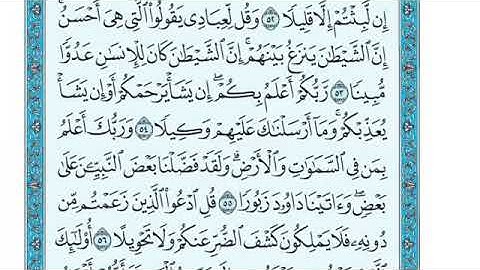 إِن لَّبِثْتُمْ إِلَّا قَلِيلًا ٥٢ وَقُل لِّعِبَادِى يَقُولُوا۟ ٱلَّتِى هِىَ أَحْسَنُ ۚ
إِنَّ ٱلشَّيْطَٰنَ يَنزَغُ بَيْنَهُمْ ۚ إِنَّ ٱلشَّيْطَٰنَ كَانَ لِلْإِنسَٰنِ عَدُوًّا
مُّبِينًا ٥٣ رَّبُّكُمْ أَعْلَمُ بِكُمْ ۖ إِن يَشَأْ يَرْحَمْكُمْ أَوْ إِن يَشَأْ
يُعَذِّبْكُمْ ۚ وَمَآ أَرْسَلْنَٰكَ عَلَيْهِمْ وَكِيلًا ٥٤ وَرَبُّكَ أَعْلَمُ
بِمَن فِى ٱلسَّمَٰوَٰتِ وَٱلْأَرْضِ ۗ وَلَقَدْ فَضَّلْنَا بَعْضَ ٱلنَّبِيِّۦنَ عَلَىٰ
بَعْضٍ ۖ وَءَاتَيْنَا دَاوُۥدَ زَبُورًا ٥٥ قُلِ ٱدْعُوا۟ ٱلَّذِينَ زَعَمْتُم مِّن
دُونِهِۦ فَلَا يَمْلِكُونَ كَشْفَ ٱلضُّرِّ عَنكُمْ وَلَا تَحْوِيلًا ٥٦ أُو۟لَٰٓئِكَ